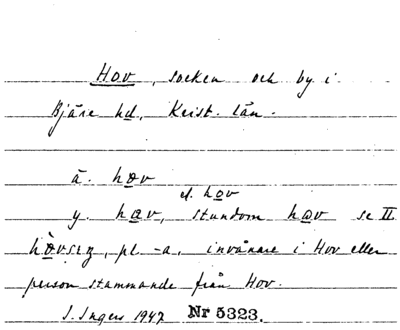 Hov, socken och by i
Bjäre hd, Krist. län.
ä. hov
el. hov
y. hav, stundom hav se II
pl. -a, invånare i Hov eller
person stammande från Hov.
I. Ingers 1947 Nr 5323.